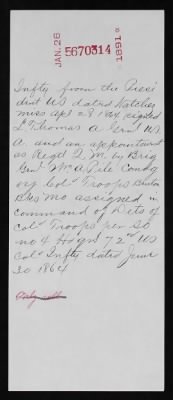 JAN. 26
5670314
1891
Infty from the Presi
dent US dated Natchez
miss apl 28 1864 signed
L Thomas A Genl US
A. and an appointment
as Regtl Q. M. by Brig
Genl Wm A Pile Comdg
org Cold Troops Benton
Bks Mo assigned in
command of Dets of
cold Troops per So
no 4 Hdqrs 72nd US
Cold Infty dated June
30 1864